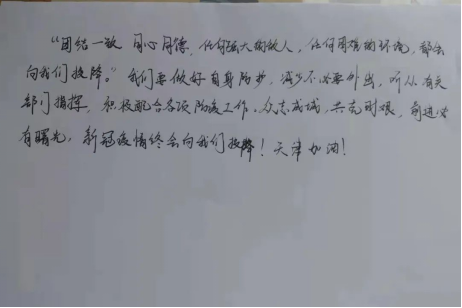 “团结一致 同心同德，任何强大的敌人，任何困难的环境，都会
向我们投降。”我们要做好自身防护，减少不必要外出，听从有关
部门指挥，积极配合各项防疫工作。众志成城，共克时艰，前途必
有曙光，新冠疫情终会向我们投降！天津加油！